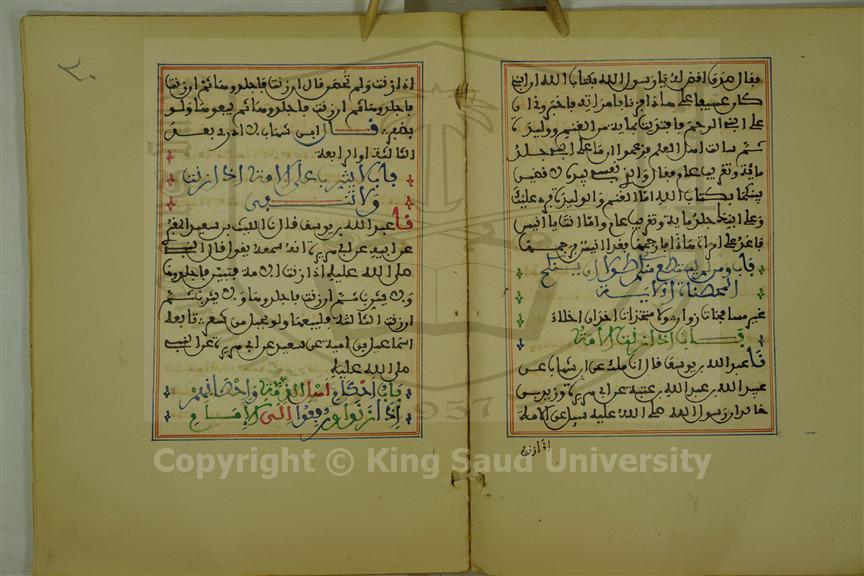 فقال صدق اقض له يا رسول الله بكتاب الله ان ابني
كان عسيفا على هاذا فزنا بامراته فاخبروني ان
على ابني الرجم فافتديت بماية من الغنم ووليدة
ثم سالت اهل العلم فزعموا ان ما على ابني جلد
مائة وتغريب عام فقال والذي نفسي بيده لاقضين
بينكما بكتاب الله اما الغنم والوليدة فرد عليك
وعلى ابنك جلد ماية وتغريب عام واما انت يا انيس
فاغد على امراة هاذا فارجمها فغدا انيس فرجمها
باب ومن لم يستطع منكم طولا ان ينكح
المحصنات الاية
غير مسافحات زواني ولا متخذات اخدان اخلاء
باب اذا زنت الامة
نا عبد الله بن يوسف قال انا ملك عن ابن شهاب عن
عبيد الله بن عبد الله بن عتبة عن ابي هريرة وزيد بن
خالد ان رسول الله صلى الله عليه سئل عن الامة
اذا زنت
اذا زنت ولم تحصن قال اذا زنت فاجلدوها ثم ان زنت
فاجلدوها ثم ان زنت فاجلدوها ثم بيعوها ولو
بضفير قال ابن شهاب لا ادري بعد
الثالثة او الرابعة
باب لا يثرب على الامة اذا زنت
ولا تنفى
نا عبد الله بن يوسف قال انا الليث عن سعيد المقبري
عن ابيه عن ابي هريرة انه سمعه يقول قال النبي
صلى الله عليه اذا زنت الامة فتبين فاجلدوها
ولا يثرب ثم ان زنت فاجلدوها ولا يثرب ثم
ان زنت الثالثة فليبعها ولو بحبل من شعر تابعه
اسماعيل بن امية عن سعيد عن ابي هريرة عن النبي
صلى الله عليه
باب احكام اهل الذمة واحصانهم
اذا زنوا ورفعوا الى الامام
Copyright © King Saud University
1957